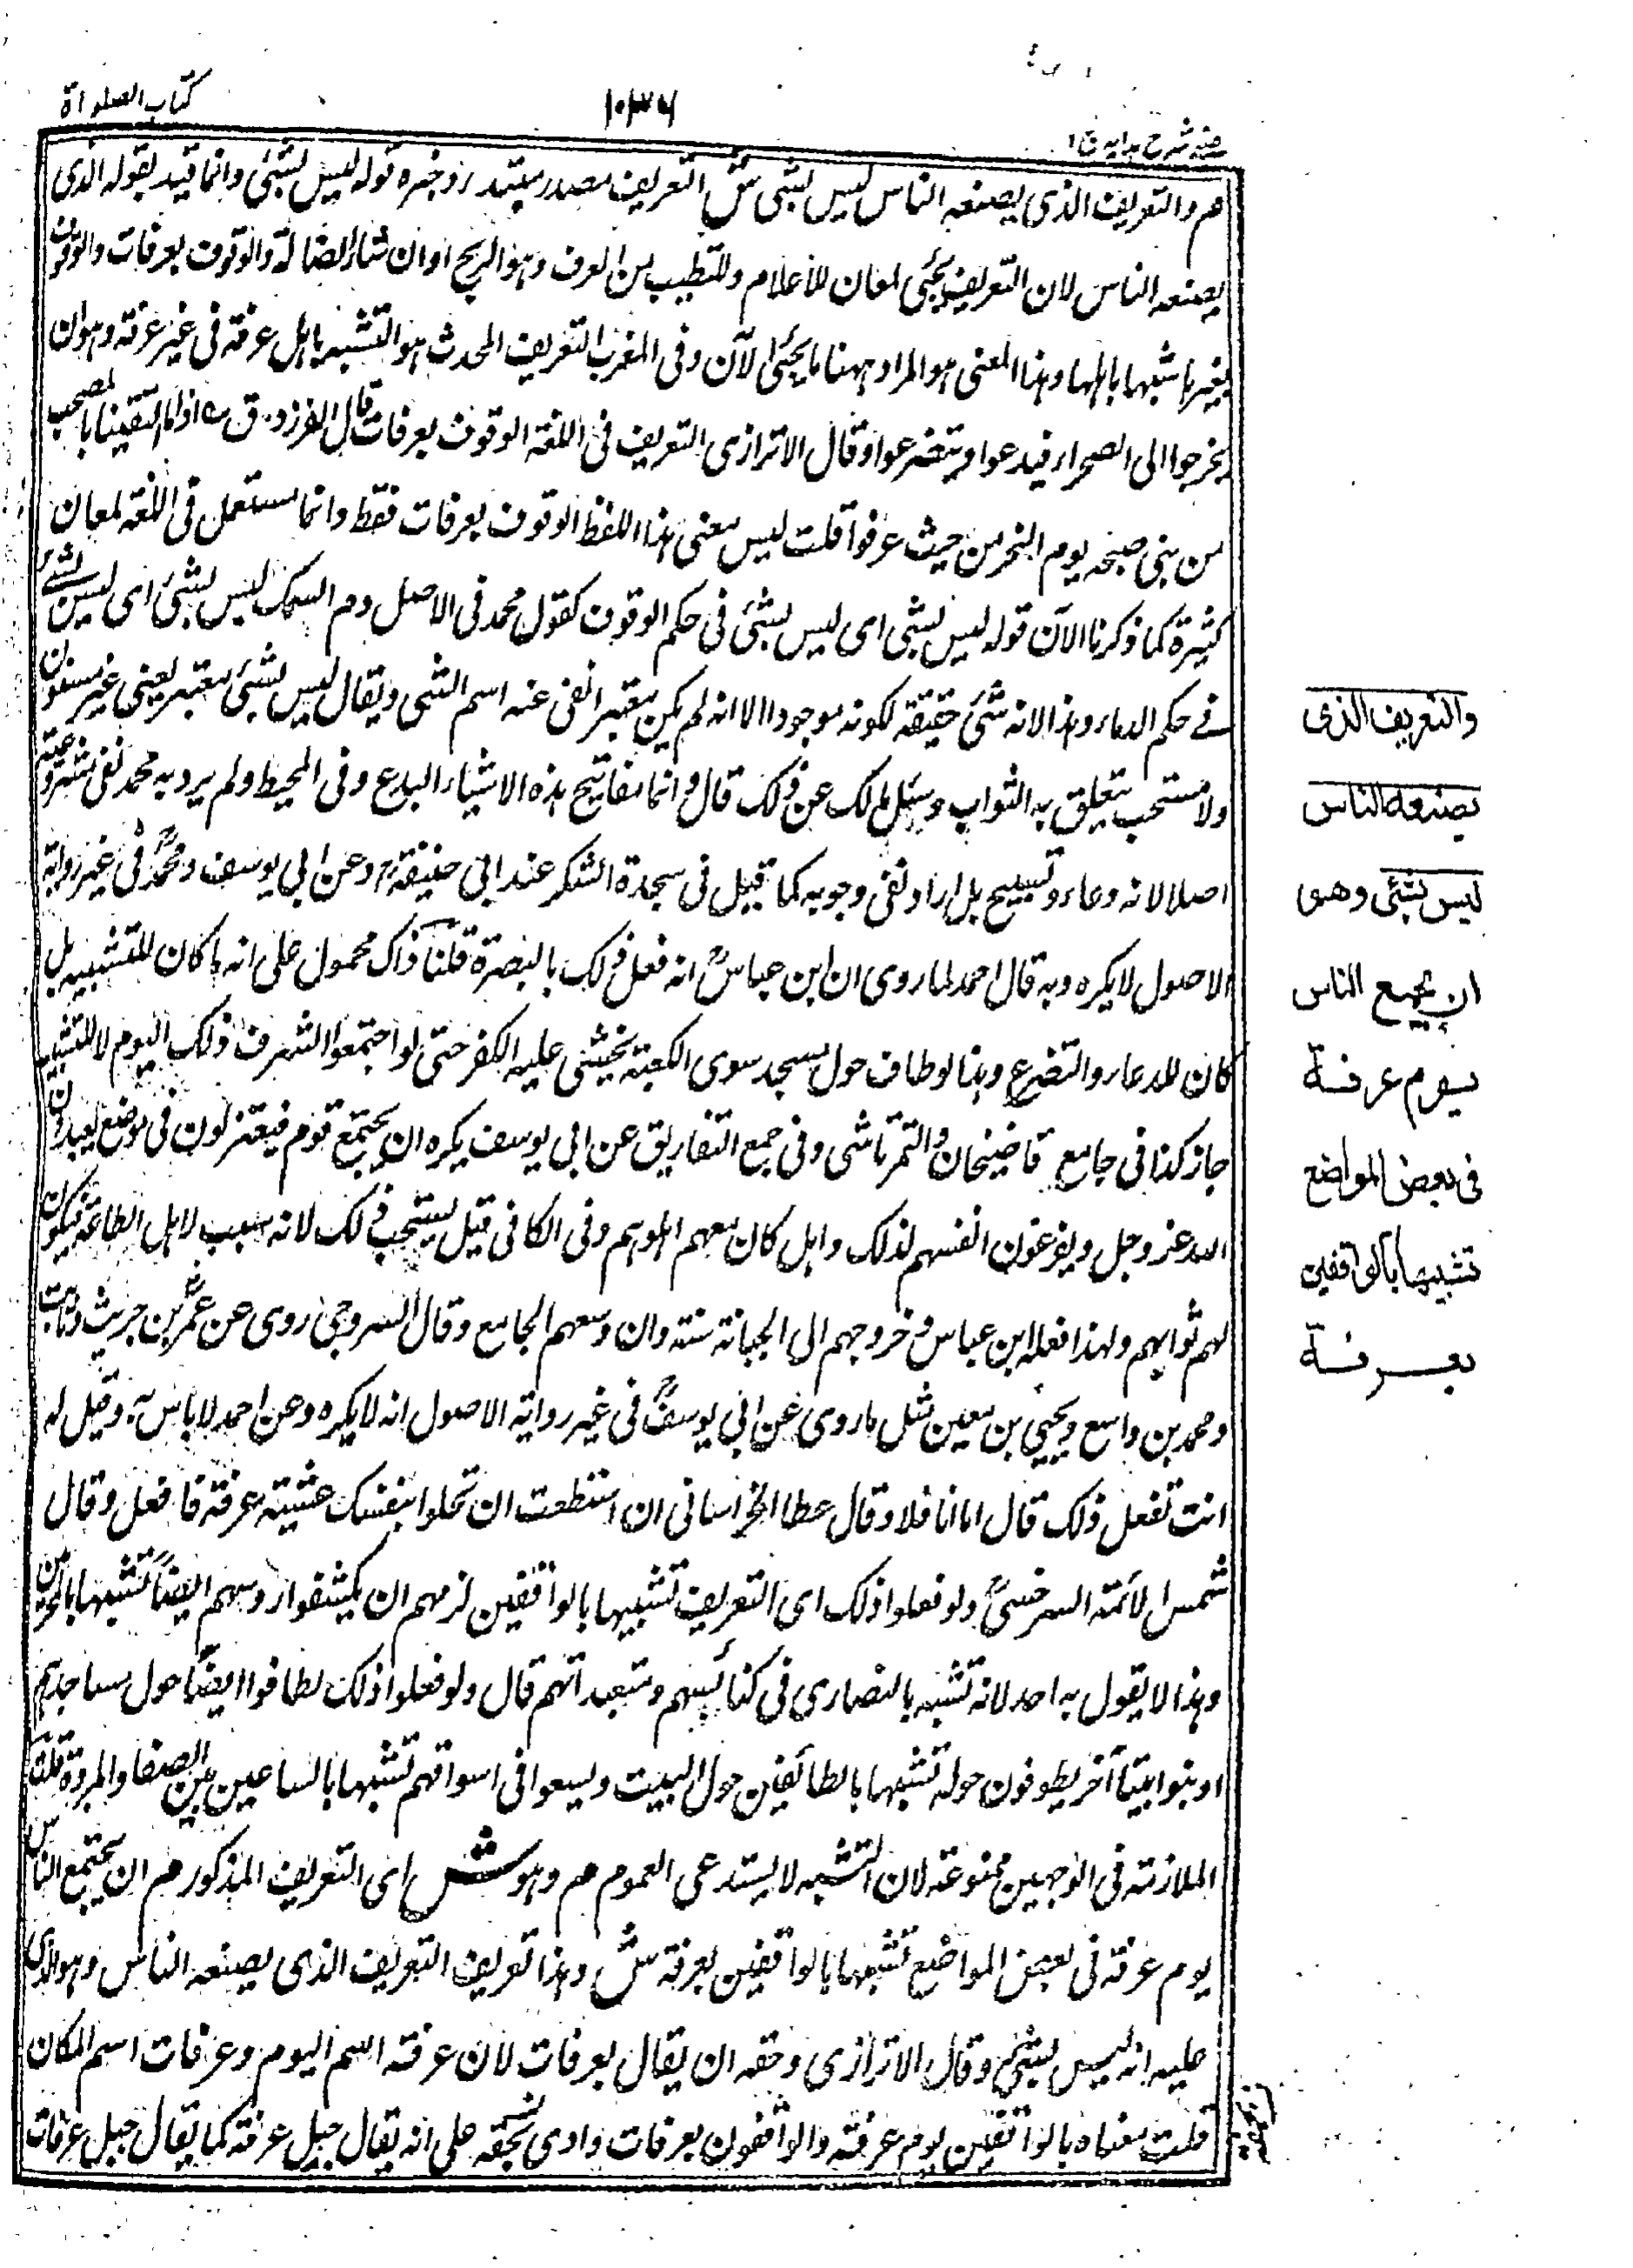 كتاب الصلواة
١٠٣٦
عينى شرح هدايه ج ١
م والتعريف الذى يصنعه الناس ليس بشئ ش التعريف مصدر مبتدء وخبره قوله ليس بشئ وانما قيد بقوله الذى
يصنعه الناس لان التعريف يجئ لمعان للاعلام وللتطيب من العرف وهو الريح او انشاد الضالة والوقوف بعرفات والوقوف
بغيرها تشبها باهلها وهذا المعنى هو المراد ههنا ما يجئ الآن وفى المغرب التعريف المحدث هو التشبه باهل عرفة فى غير عرفة وهو ان
يخرجوا الى الصحراء فيدعوا ويتضرعوا وقال الاترازى التعريف فى اللغة الوقوف بعرفات قال الفرزدق اذا ما التقينا بالمحصب
من منى صبيحة يوم النحر من حيث عرفوا قلت ليس معنى هذا اللفظ الوقوف بعرفات فقط وانما يستعمل فى اللغة لمعان
كثيرة كما ذكرنا الآن قوله ليس بشئ اى ليس بشئ فى حكم الوقوف كقول محمد فى الاصل دم السمك ليس بشئ اى ليس بشئ
فے حكم الدماء وهذا لانه شئ حقيقة لكونه موجودا الا انه لم يكن معتبرا نفى عنه اسم الشئ ويقال ليس بشئ معتبر يعنى غير مسنون
ولا مستحب يتعلق به الثواب وسئل مالك عن ذلك قال وانما مفاتيح هذه الاشياء البدع وفى المحيط ولم يرد به محمد نفى مشروعيته
اصلا لانه دعاء وتسبيح بل اراد نفى وجوبه كما قيل فى سجدة الشكر عند ابى حنيفة وعن ابى يوسف ومحمد فى غير رواية
الاصول لا يكره وبه قال احمد لما روى ان ابن عباس انه فعل ذلك بالبصرة قلنا ذاك محمول على انه ما كان للتشبيه بل
كان للدعاء والتضرع وهذا لو طاف حول مسجد سوى الكعبة يخشى عليه الكفر حتى لو اجتمعوا لشرف ذلك اليوم لا للتشبه
جاز كذا فى جامع قاضيخان والتمرتاشى وفى جمع التفاريق عن ابى يوسف يكره ان يجتمع قوم فيعتزلون فى موضع يعبدون
الله عز وجل ويفرغون انفسهم لذلك وان كان معهم اهلوهم وفى الكافى قيل يستحب ذلك لانه سبب لاهل الطاعة فيكون
لهم ثوابهم ولهذا فعله ابن عباس وخروجهم الى الجبانة سنة وان وسعهم الجامع وقال السروجى روى عن عمرو بن حريث وثابت
ومحمد بن واسع ويحيى بن معين مثل ما روى عن ابى يوسف فى غير رواية الاصول انه لا يكره وعن احمد لا باس به وقيل له
انت تفعل ذلك قال اما انا فلا وقال عطا الخراسانى ان استطعت ان تخلوا بنفسك عشية عرفة فافعل وقال
شمس الأئمة السرخسى ولو فعلوا ذلك اى التعريف تشبيها بالواقفين لزمهم ان يكشفوا رؤسهم ايضا تشبها بالمحرمين
وهذا لا يقول به احد لانه تشبه بالنصارى فى كنائسهم ومتعبداتهم قال ولو فعلوا ذلك لطافوا ايضا حول مساجدهم
او بنوا بيتا آخر يطوفون حوله تشبها بالطائفين حول البيت ويسعوا فى اسواقهم تشبها بالساعين بين الصفا والمروة قلت
الملازمة فى الوجهين ممنوعة لان التشبه لا يستدعى العموم م وهو ش اى التعريف المذكور م ان يجتمع الناس
يوم عرفة فى بعض المواضع تشبها بالواقفين بعرفة ش وهذا تعريف التعريف الذى يصنعه الناس وهو الذى
عليه انه ليس بشئ وقال الاترازى وحقه ان يقال بعرفات لان عرفة اسم اليوم وعرفات اسم المكان
قلت معناه بالواقفين يوم عرفة والواقفون بعرفات وادى على انه يقال جبل عرفة كما يقال جبل عرفات
والتعريف الذى
يصنعه الناس
ليس بشئ وهو
ان يجمع الناس
يوم عرفة
فى بعض المواضع
تشبيها بالواقفين
بعرفة